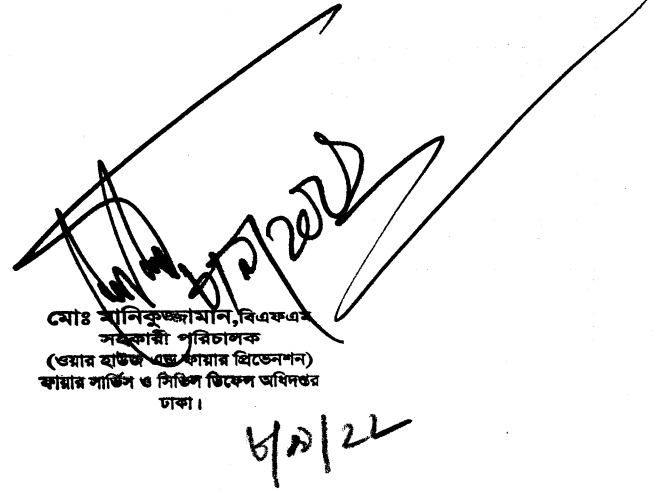 মোঃ মানিকুজ্জামান,বিএফএম
সহকারী পরিচালক
(ওয়ার হাউজ এন্ড ফায়ার প্রিভেনশন)
ফায়ার সার্ভিস ও সিভিল ডিফেন্স অধিদপ্তর
ঢাকা।
৮/৯/২২